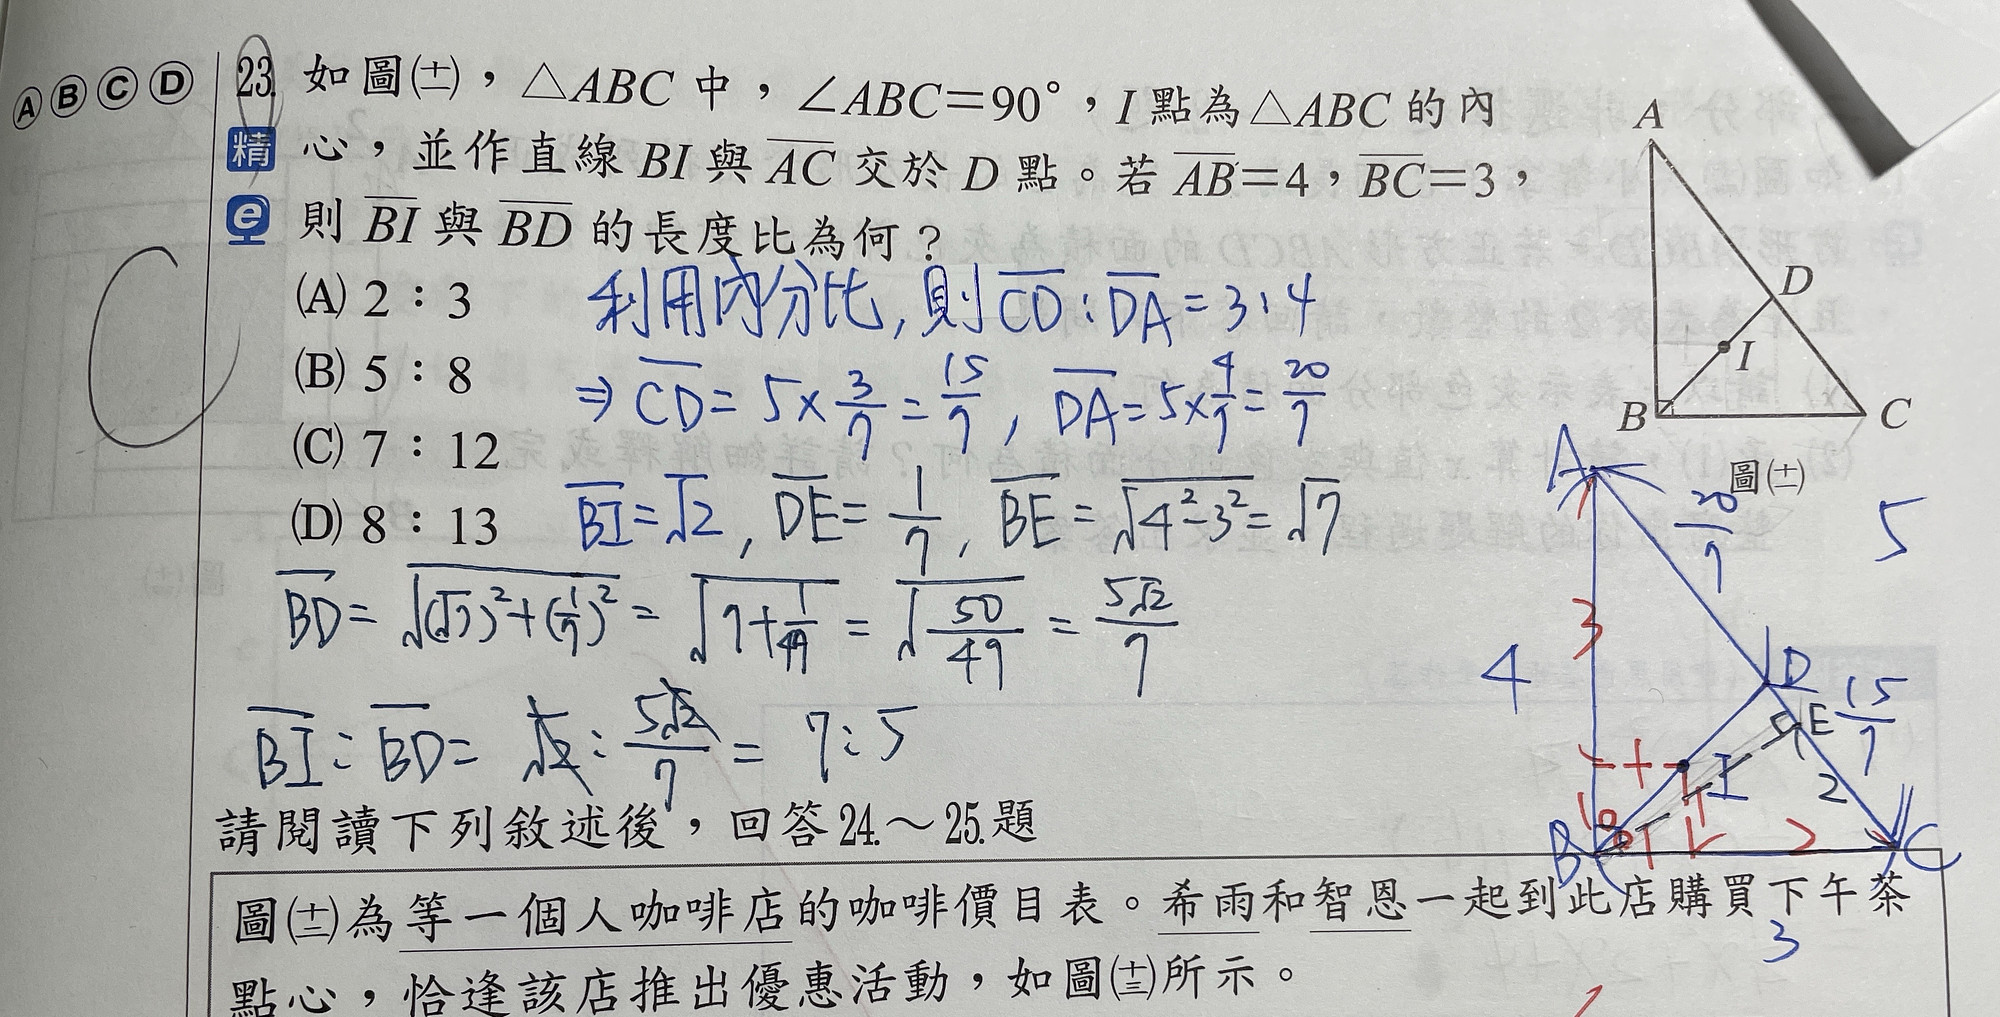 Ⓐ Ⓑ Ⓒ Ⓓ 23. 如圖(十一)，△ABC 中，∠ABC＝90°，I 點為△ABC 的內
精 心，並作直線 BI 與 AC 交於 D 點。若 AB＝4，BC＝3，
e 則 BI 與 BD 的長度比為何？
(A) 2：3
(B) 5：8
(C) 7：12
(D) 8：13
C
利用內分比, 則 CD : DA = 3 : 4
⇒ CD = 5 × 3/7 = 15/7 , DA = 5 × 4/7 = 20/7
BI = √2 , DE = 1/7 , BE = √(4²-3²) = √7
BD = √((√7)²+(1/7)²) = √(7+1/49) = √(50/49) = 5√2/7
BI : BD = √2 : 5√2/7 = 7 : 5
A
D
I
B
C
圖(十一)
A
20/7
5
3
4
D
15/7
E
1
I
2
B
1
1
2
C
3
請閱讀下列敘述後，回答24.～25.題
圖(十二)為等一個人咖啡店的咖啡價目表。希雨和智恩一起到此店購買下午茶
點心，恰逢該店推出優惠活動，如圖(十三)所示。